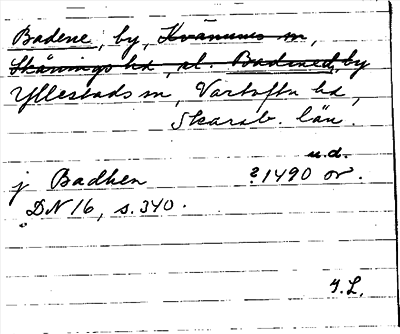 Badene, by, Kvänums sn,
Skånings hd, el. Badened, by
Yllestads sn, Vartofta hd,
Skarab. län.
u.d.
j Badhen ?1490 or.
DN 16, s. 340.
I.L.